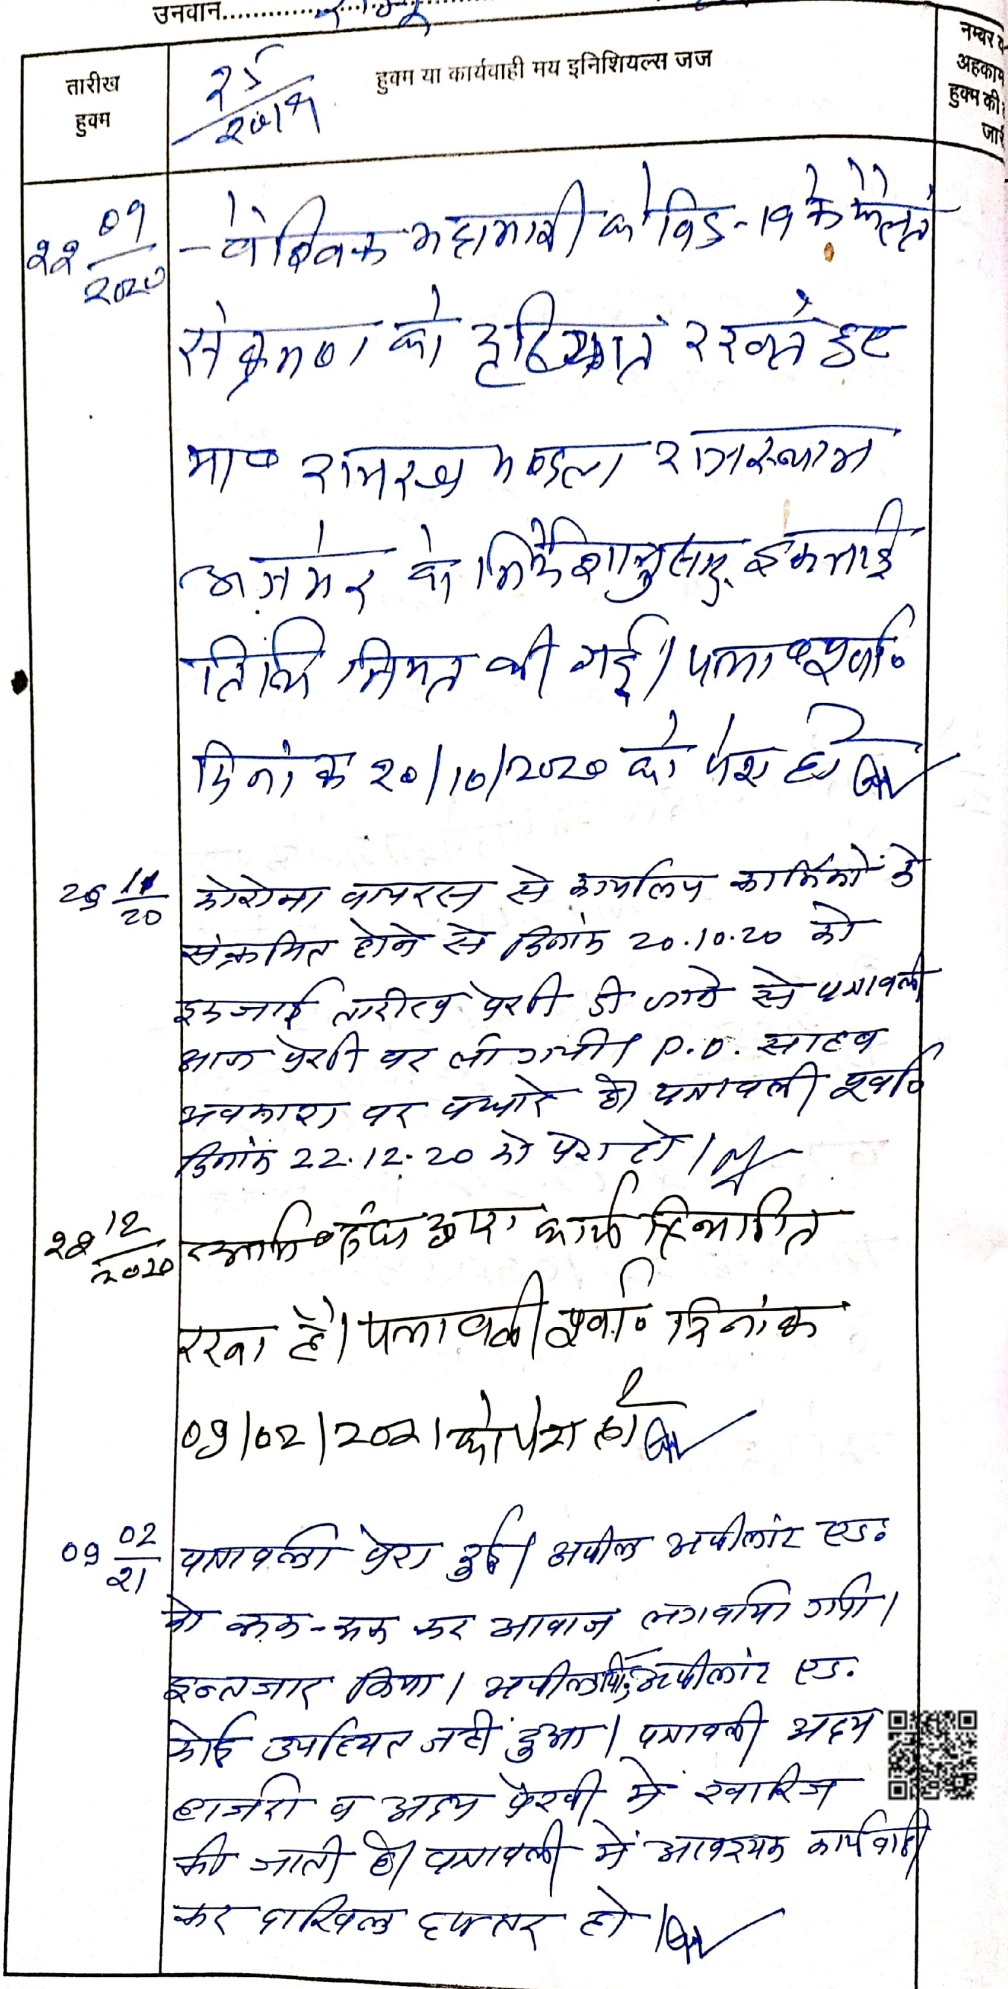 उनवान
तारीख हुक्म
25/2019
हुक्म या कार्यवाही मय इनिशियल्स जज
नम्बर व
अहकाम
हुक्म की
जारी
22 09/2020
- वैश्विक महामारी कोविड-19 के फैलते
संक्रमण को दृष्टिगत रखते हुए
मा० राजस्व मण्डल राजस्थान
अजमेर के निर्देशानुसार इकजाई
तिथि नियत की गई। पत्रा० पूर्वा०
दिनांक 20/10/2020 को पेश हो
25 11/20
कोरोना वायरस से कार्यालय कार्मिकों के
संक्रमित होने से दिनांक 20.10.20 को
इकजाई तारीख पेशी दी जाने से पत्रावली
आज पेशी पर ली गयी। P.O. साहब
अवकाश पर पधारे है। पत्रावली पूर्वा०
दिनांक 22.12.20 को पेश हो।
22 12/2020
संघ द्वारा कार्य स्थगित
रखा है। पत्रावली पूर्वा० दिनांक
09/02/2021 को पेश हो
09 02/21
पत्रावली पेश हुई। अपील अपीलांट एड०
को रूक-रूक कर आवाज लगवायी गयी।
इन्तजार किया। अपीलांट एड.
कोई उपस्थित नहीं हुआ। पत्रावली अदम
हाजरी व अदम पैरवी में खारिज
की जाती है। पत्रावली में आवश्यक कार्यवाही
कर दाखिल दफ्तर हो।